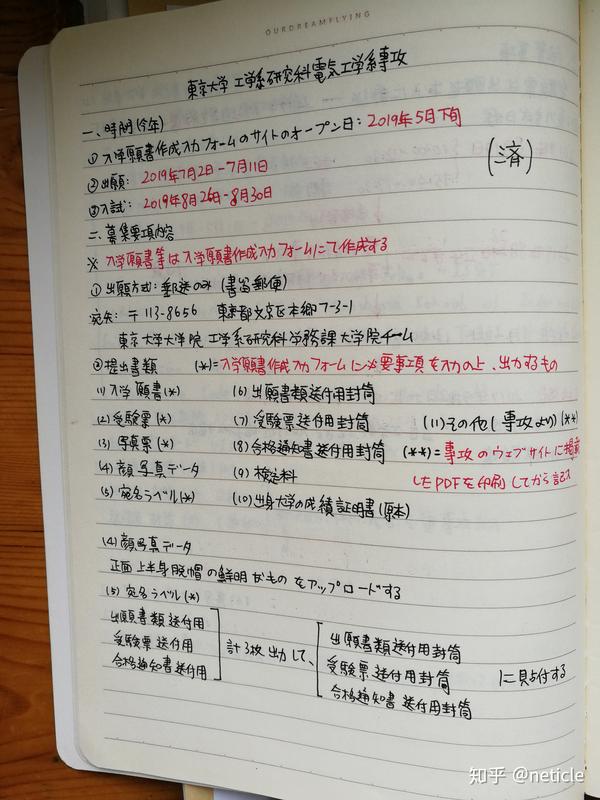 OURDREAMFLYING
東京大学 工学系研究科電気工学系専攻
一、時間(今年)
① 入学願書作成入力フォームのサイトのオープン日：2019年5月下旬
(済)
② 出願： 2019年7月2日-7月11日
③ 入試： 2019年8月26日-8月30日
二、募集要項内容
※ 入学願書等は入学願書作成入力フォームにて作成する
① 出願方式：郵送のみ (書留郵便)
宛先：〒113-8656 東京都文京区本郷7-3-1
東京大学大学院 工学系研究科学務課大学院チーム
② 提出書類 (*)=入学願書作成入力フォームに必要事項を入力の上、出力するもの
(1) 入学願書(*) (6) 出願書類送付用封筒
(2) 受験票(*) (7) 受験票送付用封筒 (11) その他(専攻より)(**)
(3) 写真票(*) (8) 合格通知書送付用封筒 (**)=専攻のウェブサイトに掲載
(4) 顔写真データ (9) 検定料 したPDFを印刷してから記入
(5) 宛名ラベル(*) (10) 出身大学の成績証明書(原本)
(4) 顔写真データ
正面上半身脱帽の鮮明なものをアップロードする
(5) 宛名ラベル(*)
出願書類送付用 出願書類送付用封筒
受験票送付用 計3枚出力して、 受験票送付用封筒 に貼付する
合格通知書送付用 合格通知書送付用封筒
知乎 @neticle